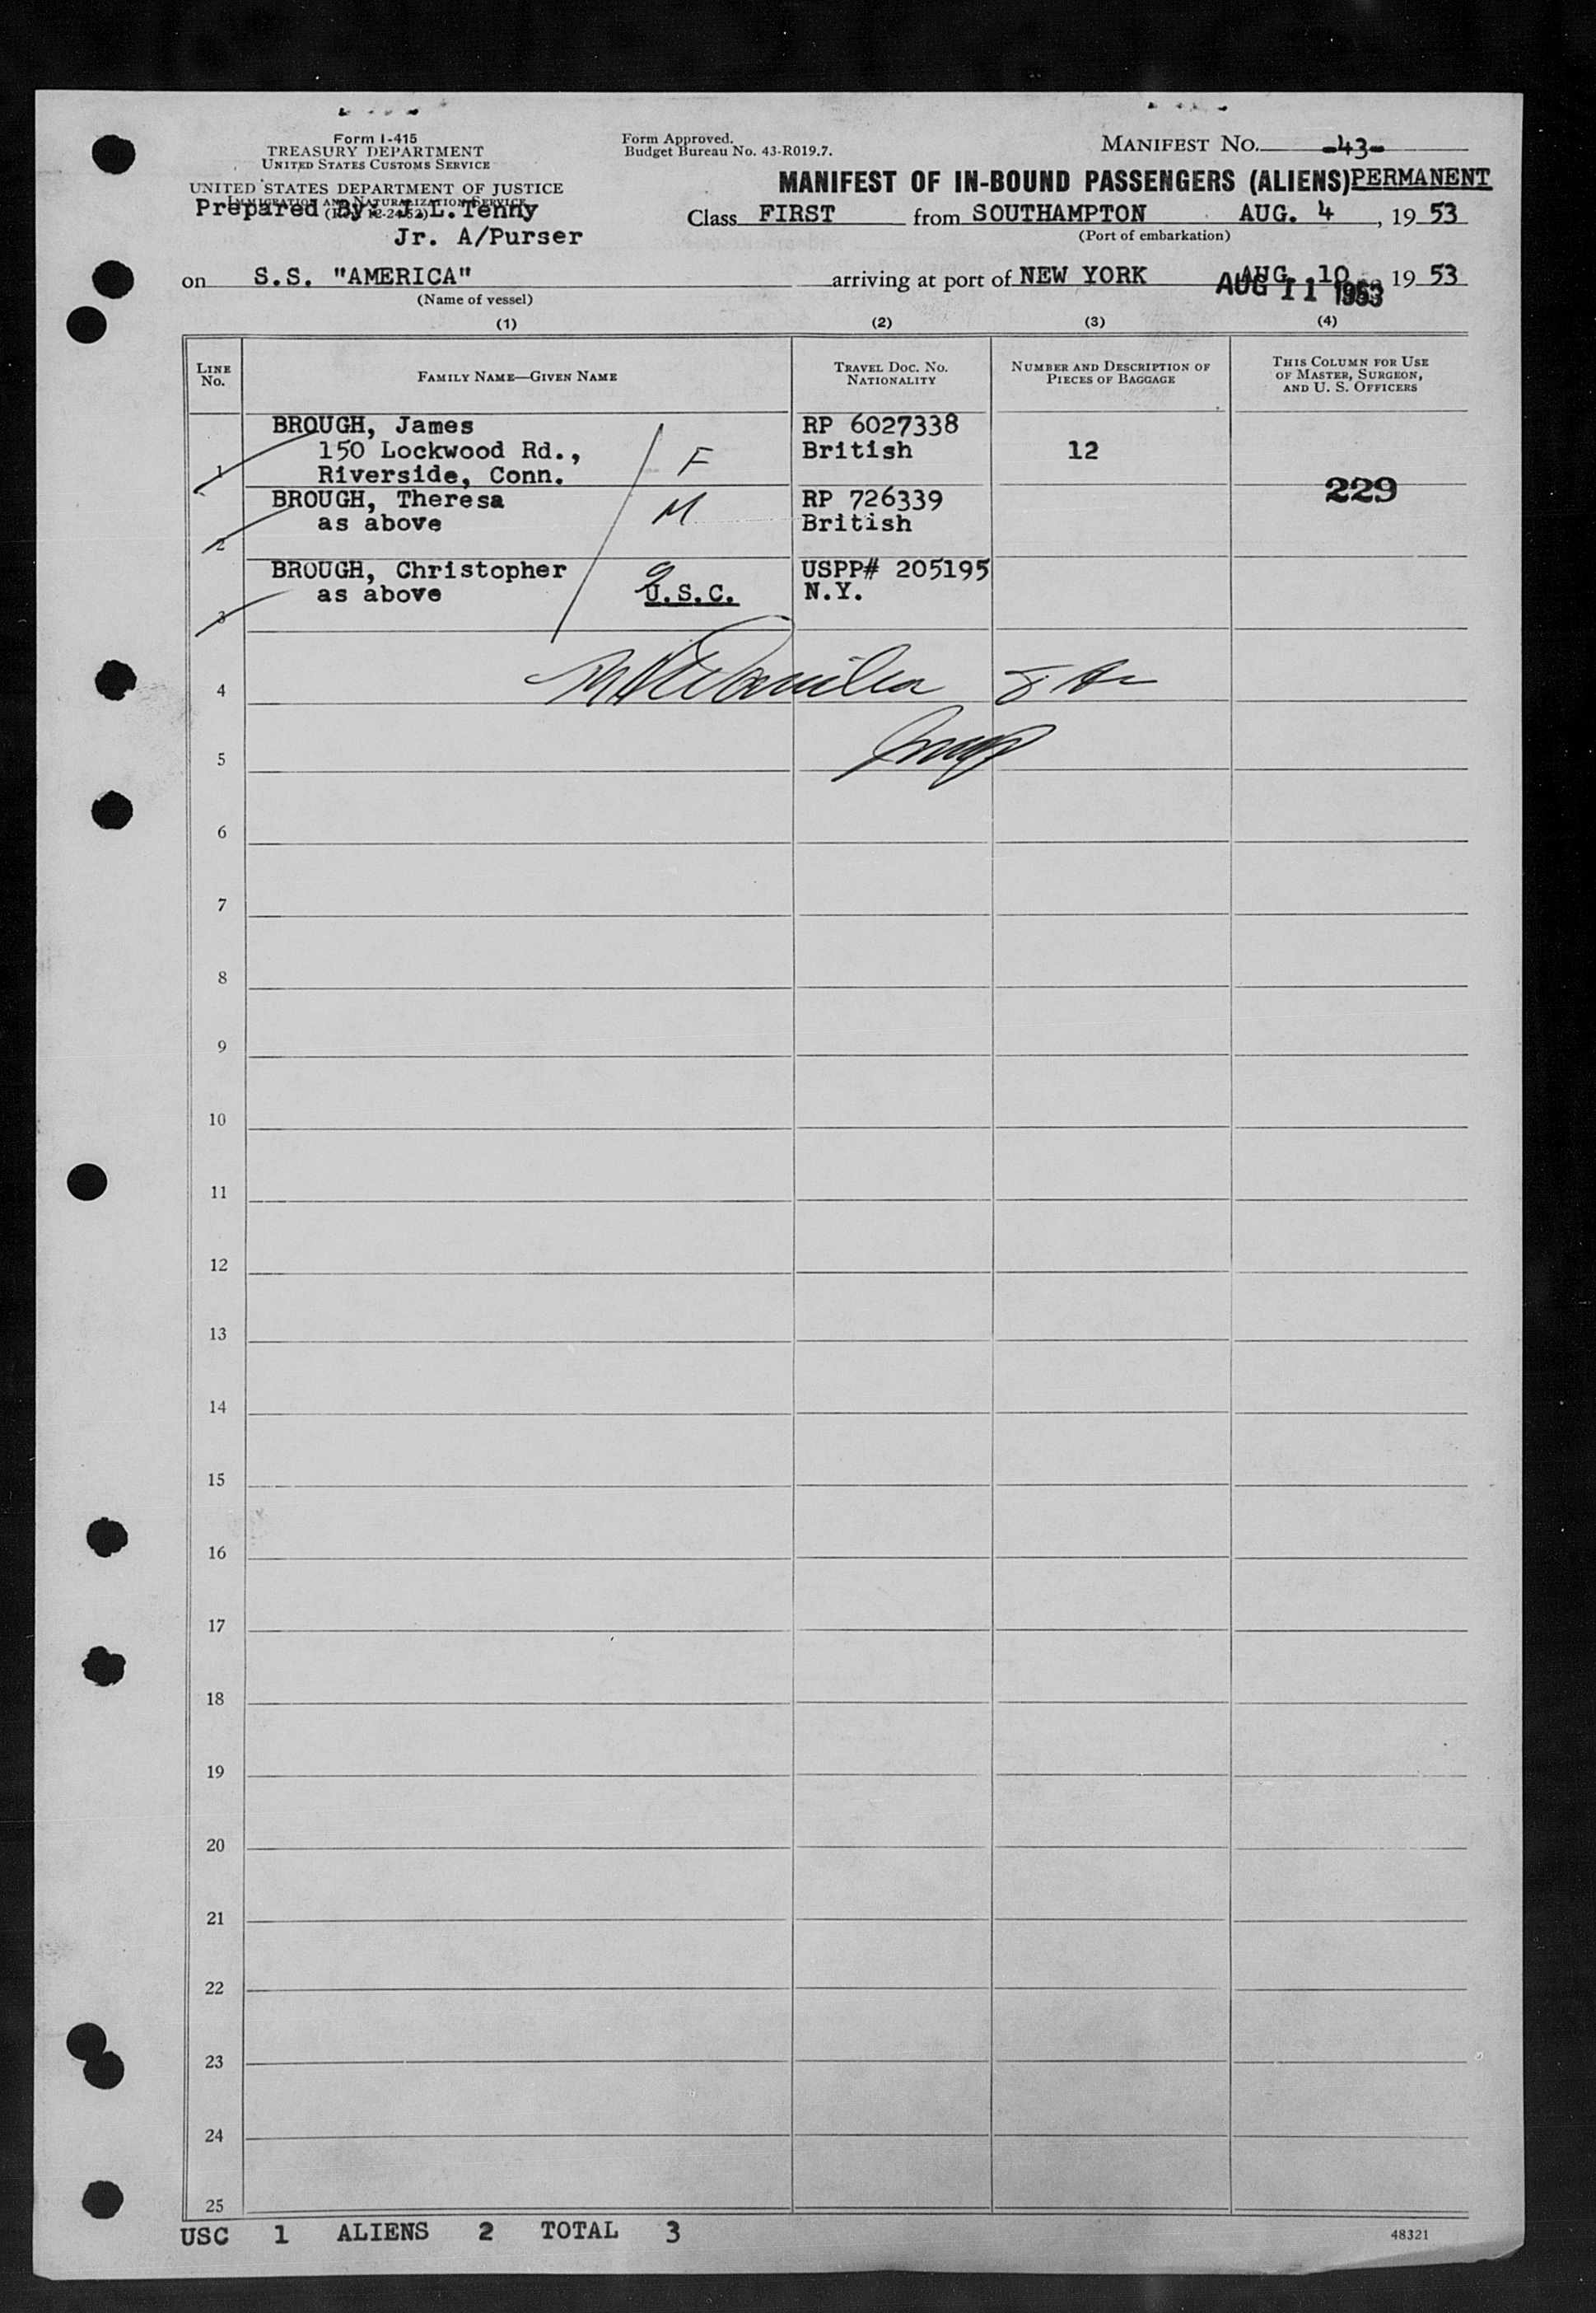 Form I-415
TREASURY DEPARTMENT
UNITED STATES CUSTOMS SERVICE
UNITED STATES DEPARTMENT OF JUSTICE
IMMIGRATION AND NATURALIZATION SERVICE
Prepared By: J.L.Tenny
Jr. A/Purser
Form Approved.
Budget Bureau No. 43-R019.7.
MANIFEST No. -43-
MANIFEST OF IN-BOUND PASSENGERS (ALIENS) PERMANENT
Class FIRST from SOUTHAMPTON AUG. 4, 19 53
(Port of embarkation)
on S.S. "AMERICA" arriving at port of NEW YORK AUG. 10, 19 53
AUG 11 1953
(Name of vessel)
(1) (2) (3) (4)
LINE No. FAMILY NAME—GIVEN NAME TRAVEL DOC. NO. NATIONALITY NUMBER AND DESCRIPTION OF PIECES OF BAGGAGE THIS COLUMN FOR USE OF MASTER, SURGEON, AND U. S. OFFICERS
BROUGH, James RP 6027338
150 Lockwood Rd., F British 12
1 Riverside, Conn.
229
BROUGH, Theresa M RP 726339
as above British
2
BROUGH, Christopher USPP# 205195
as above U.S.C. N.Y.
3
4
5
6
7
8
9
10
11
12
13
14
15
16
17
18
19
20
21
22
23
24
25
USC 1 ALIENS 2 TOTAL 3
48321